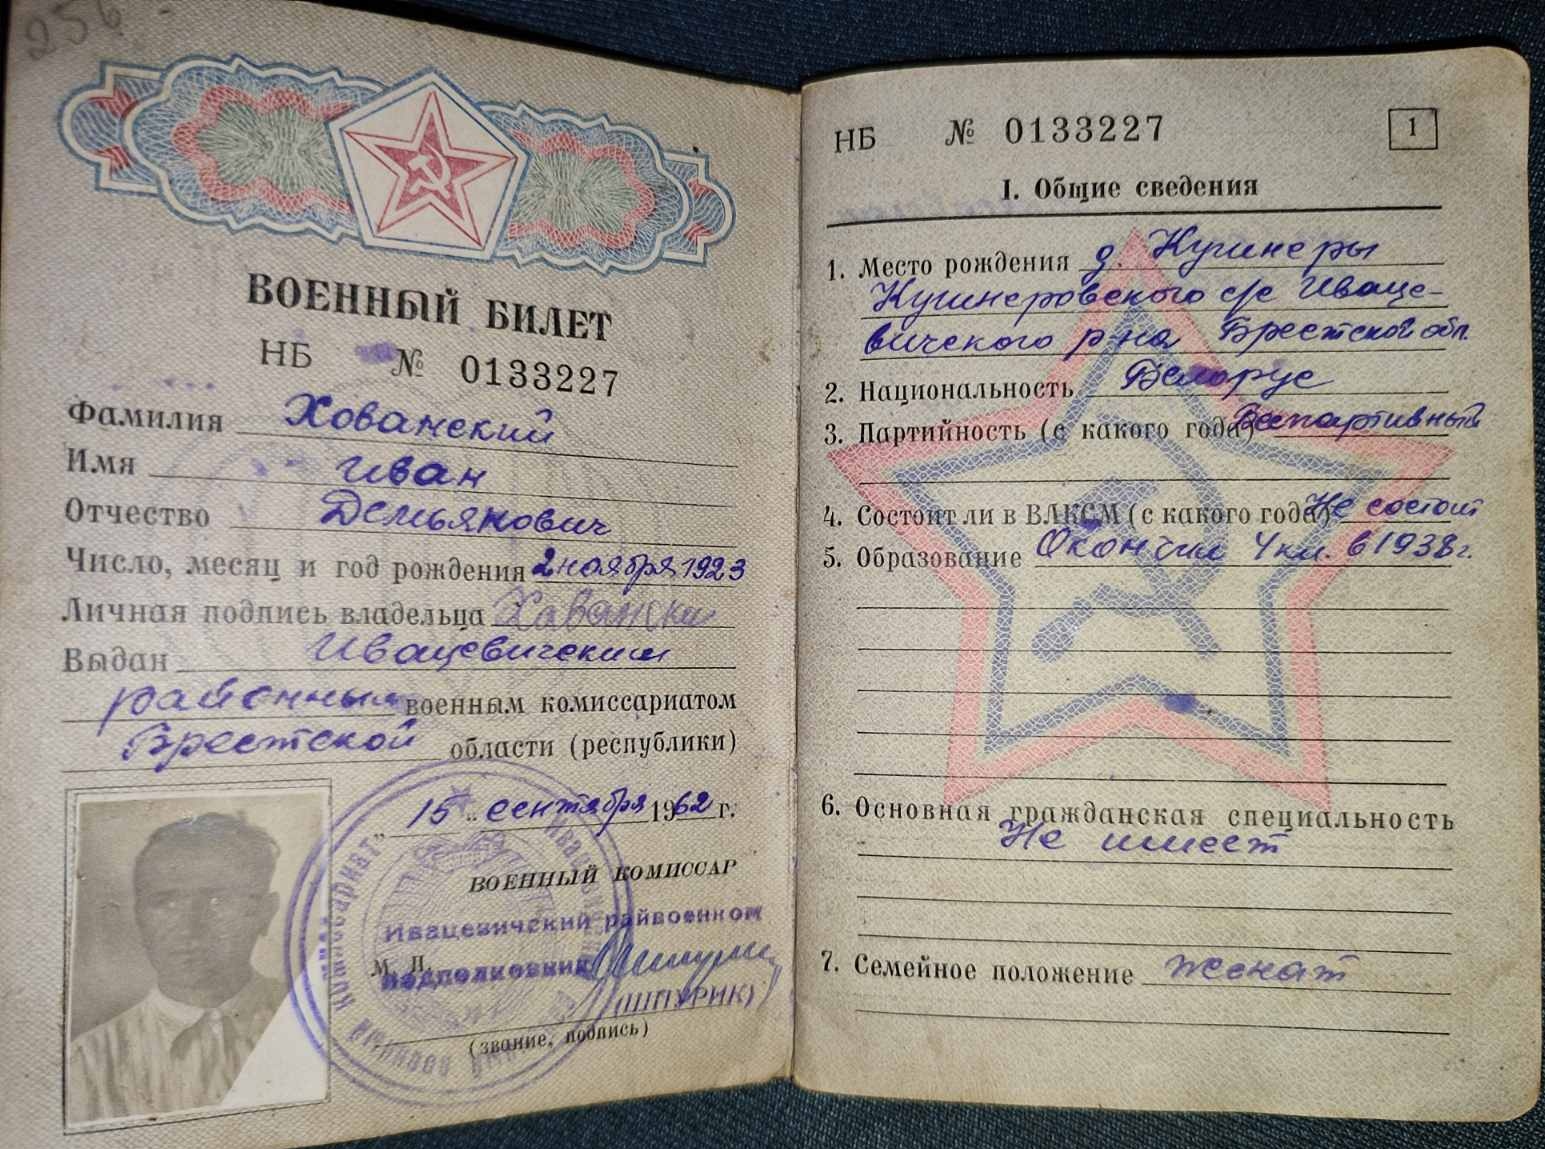 256
ВОЕННЫЙ БИЛЕТ
НБ № 0133227
Фамилия Хованский
Имя Иван
Отчество Демьянович
Число, месяц и год рождения 2 ноября 1923
Личная подпись владельца
Выдан Ивацевичским
районным военным комиссариатом
Брестской области (республики)
„15" сентября 1962 г.
ВОЕННЫЙ КОМИССАР
Ивацевичский райвоенком
М. П. подполковник
(ШПУРИК)
(звание, подпись)
НБ № 0133227
1
I. Общие сведения
1. Место рождения д. Кушнеры
Кушнеровского с/с Иваце-
вичского р-на Брестской обл.
2. Национальность Белорус
3. Партийность (с какого года) Беспартивный
4. Состоит ли в ВЛКСМ (с какого года) Не состоит
5. Образование Окончил 4 кл. в 1938 г.
6. Основная гражданская специальность
Не имеет
7. Семейное положение женат